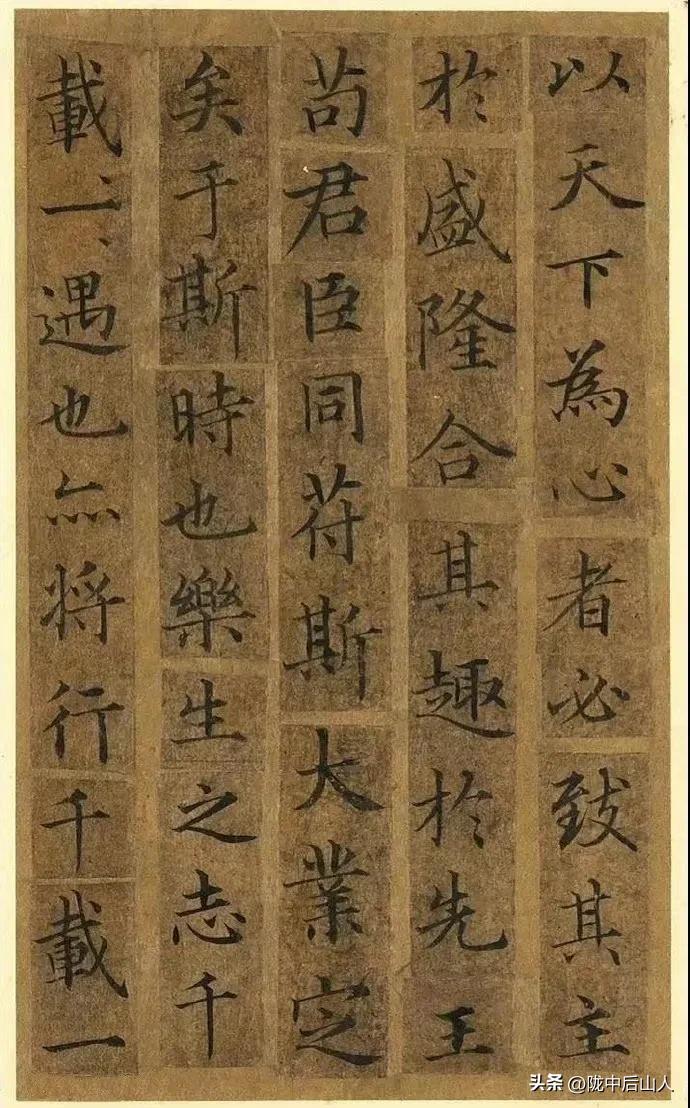 以天下為心者必致其主
於盛隆合其趣於先王
苟君臣同苻斯大業定
矣于斯時也樂生之志千
載一遇也亦将行千載一
头条 @陇中后山人